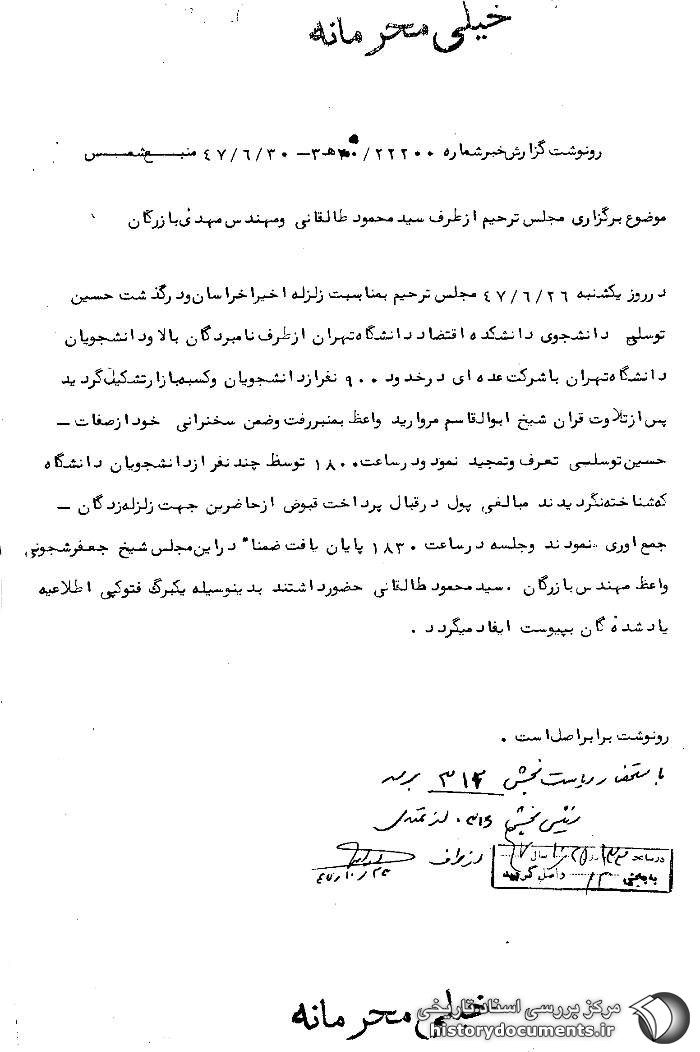 خیلی محرمانه
رونوشت گزارش خبر شماره ۲۲۲۰۰/ ه‍ ۳ – ۴۷/۶/۳۰ منبع شمس
موضوع برگزاری مجلس ترحیم از طرف سید محمود طالقانی و مهندس مهدی بازرگان
در روز یکشنبه ۴۷/۶/۲۶ مجلس ترحیم بمناسبت زلزله اخیر اخراسان ودرگذشت حسین
توسلی دانشجوی دانشکده اقتضاد دانشگاه تهران از طرف نامبردگان بالا ودانشجویان
دانشگاه تهران با شرکت عده ای درخدود ۹۰۰ نفر از دانشجویان وکسبه بازار تشکیل گردید
پس از تلاوت قران شیخ ابوالقاسم مروارید واعظ بمنبر رفت وضمن سخنرانی خود از صفات –
حسین توسلسی تعرف وتمجید نمود ودر ساعت ۱۸۰۰ توسظ چند نفر از دانشجویان دانشگاه
که شناخته نگردیدند مبالغی پول در قبال پرداخت قبوض از حاضرین جهت زلزله زدگان –
جمع اوری نمودند وجلسه در ساعت ۱۸۳۰ پایان یافت ضمنا" در این مجلس شیخ جعفر شجونی
واعظ مهندس بازرگان . سید محمود طالقانی حضور داشتند بدینوسیله یکبرگ فتوکپی اطلاعیه
یاد شده گان بپیوست ایفاد میگردد .
رونوشت برابر اصل است .
با ستحضار ریاست بخش ۳۱۲ برسد
رئیس بخش ۳۱۶ .
از طرف
در ساعت روز سال
به بخش ۳۱۲ داخل گردید
۴۷/۱۰/۲۳
خیلی محرمانه
مرکز بررسی اسناد تاریخی
historydocuments.ir